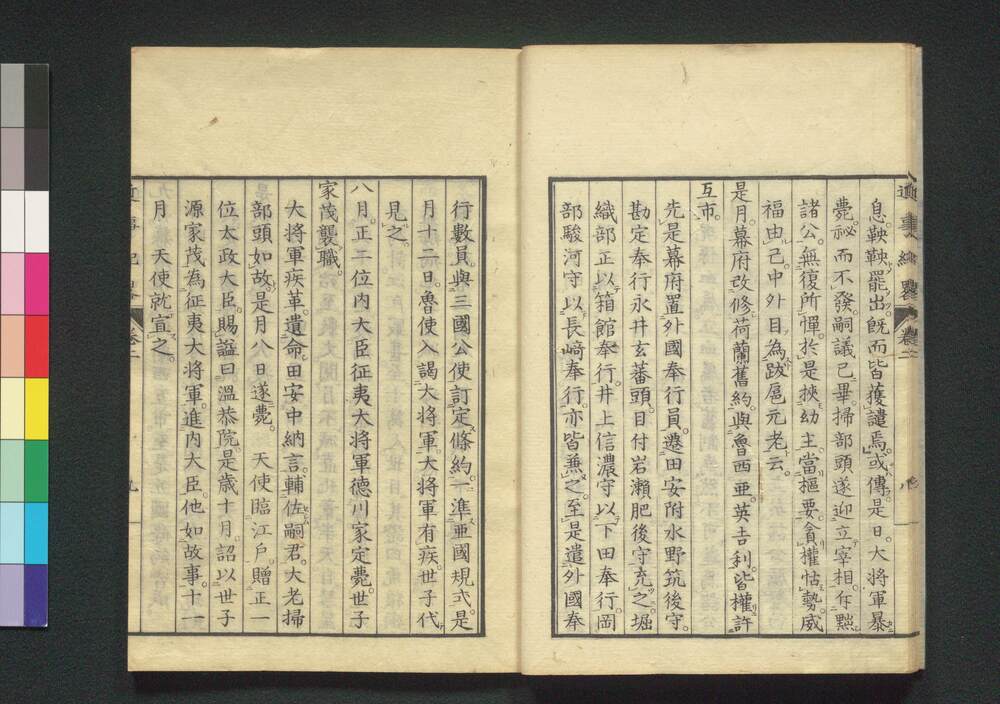 近事紀畧 卷二
息鞅鞅罷出既而皆獲譴焉或傳是日大將軍暴
薨祕而不發嗣議已畢掃部頭遂迎立宰相仵黜
諸公無復所憚於是挾幼主當樞要貪權怙勢威
福由己中外目為跋扈元老云
是月幕府改修荷蘭舊約與魯西亜英吉利皆權許
互市
先是幕府置外國奉行員遷田安附水野筑後守
勘定奉行永井玄蕃頭目付岩瀨肥後守充之堀
織部正以箱館奉行井上信濃守以下田奉行岡
部駿河守以長﨑奉行亦皆兼之至是遣外國奉
八
行數員與三國公使訂定條約一準亜國規式是
月十二日魯使入謁大將軍大將軍有疾世子代
見之
八月正二位內大臣征夷大將軍德川家定薨世子
家茂襲職
大將軍疾革遺命田安中納言輔佐嗣君大老掃
部頭如故是月八日遂薨 天使臨江戶贈正一
位太政大臣賜諡曰溫恭院是歳十月詔以世子
源家茂為征夷大將軍進內大臣他如故事十一
月 天使就宣之
近事紀畧 卷二 九